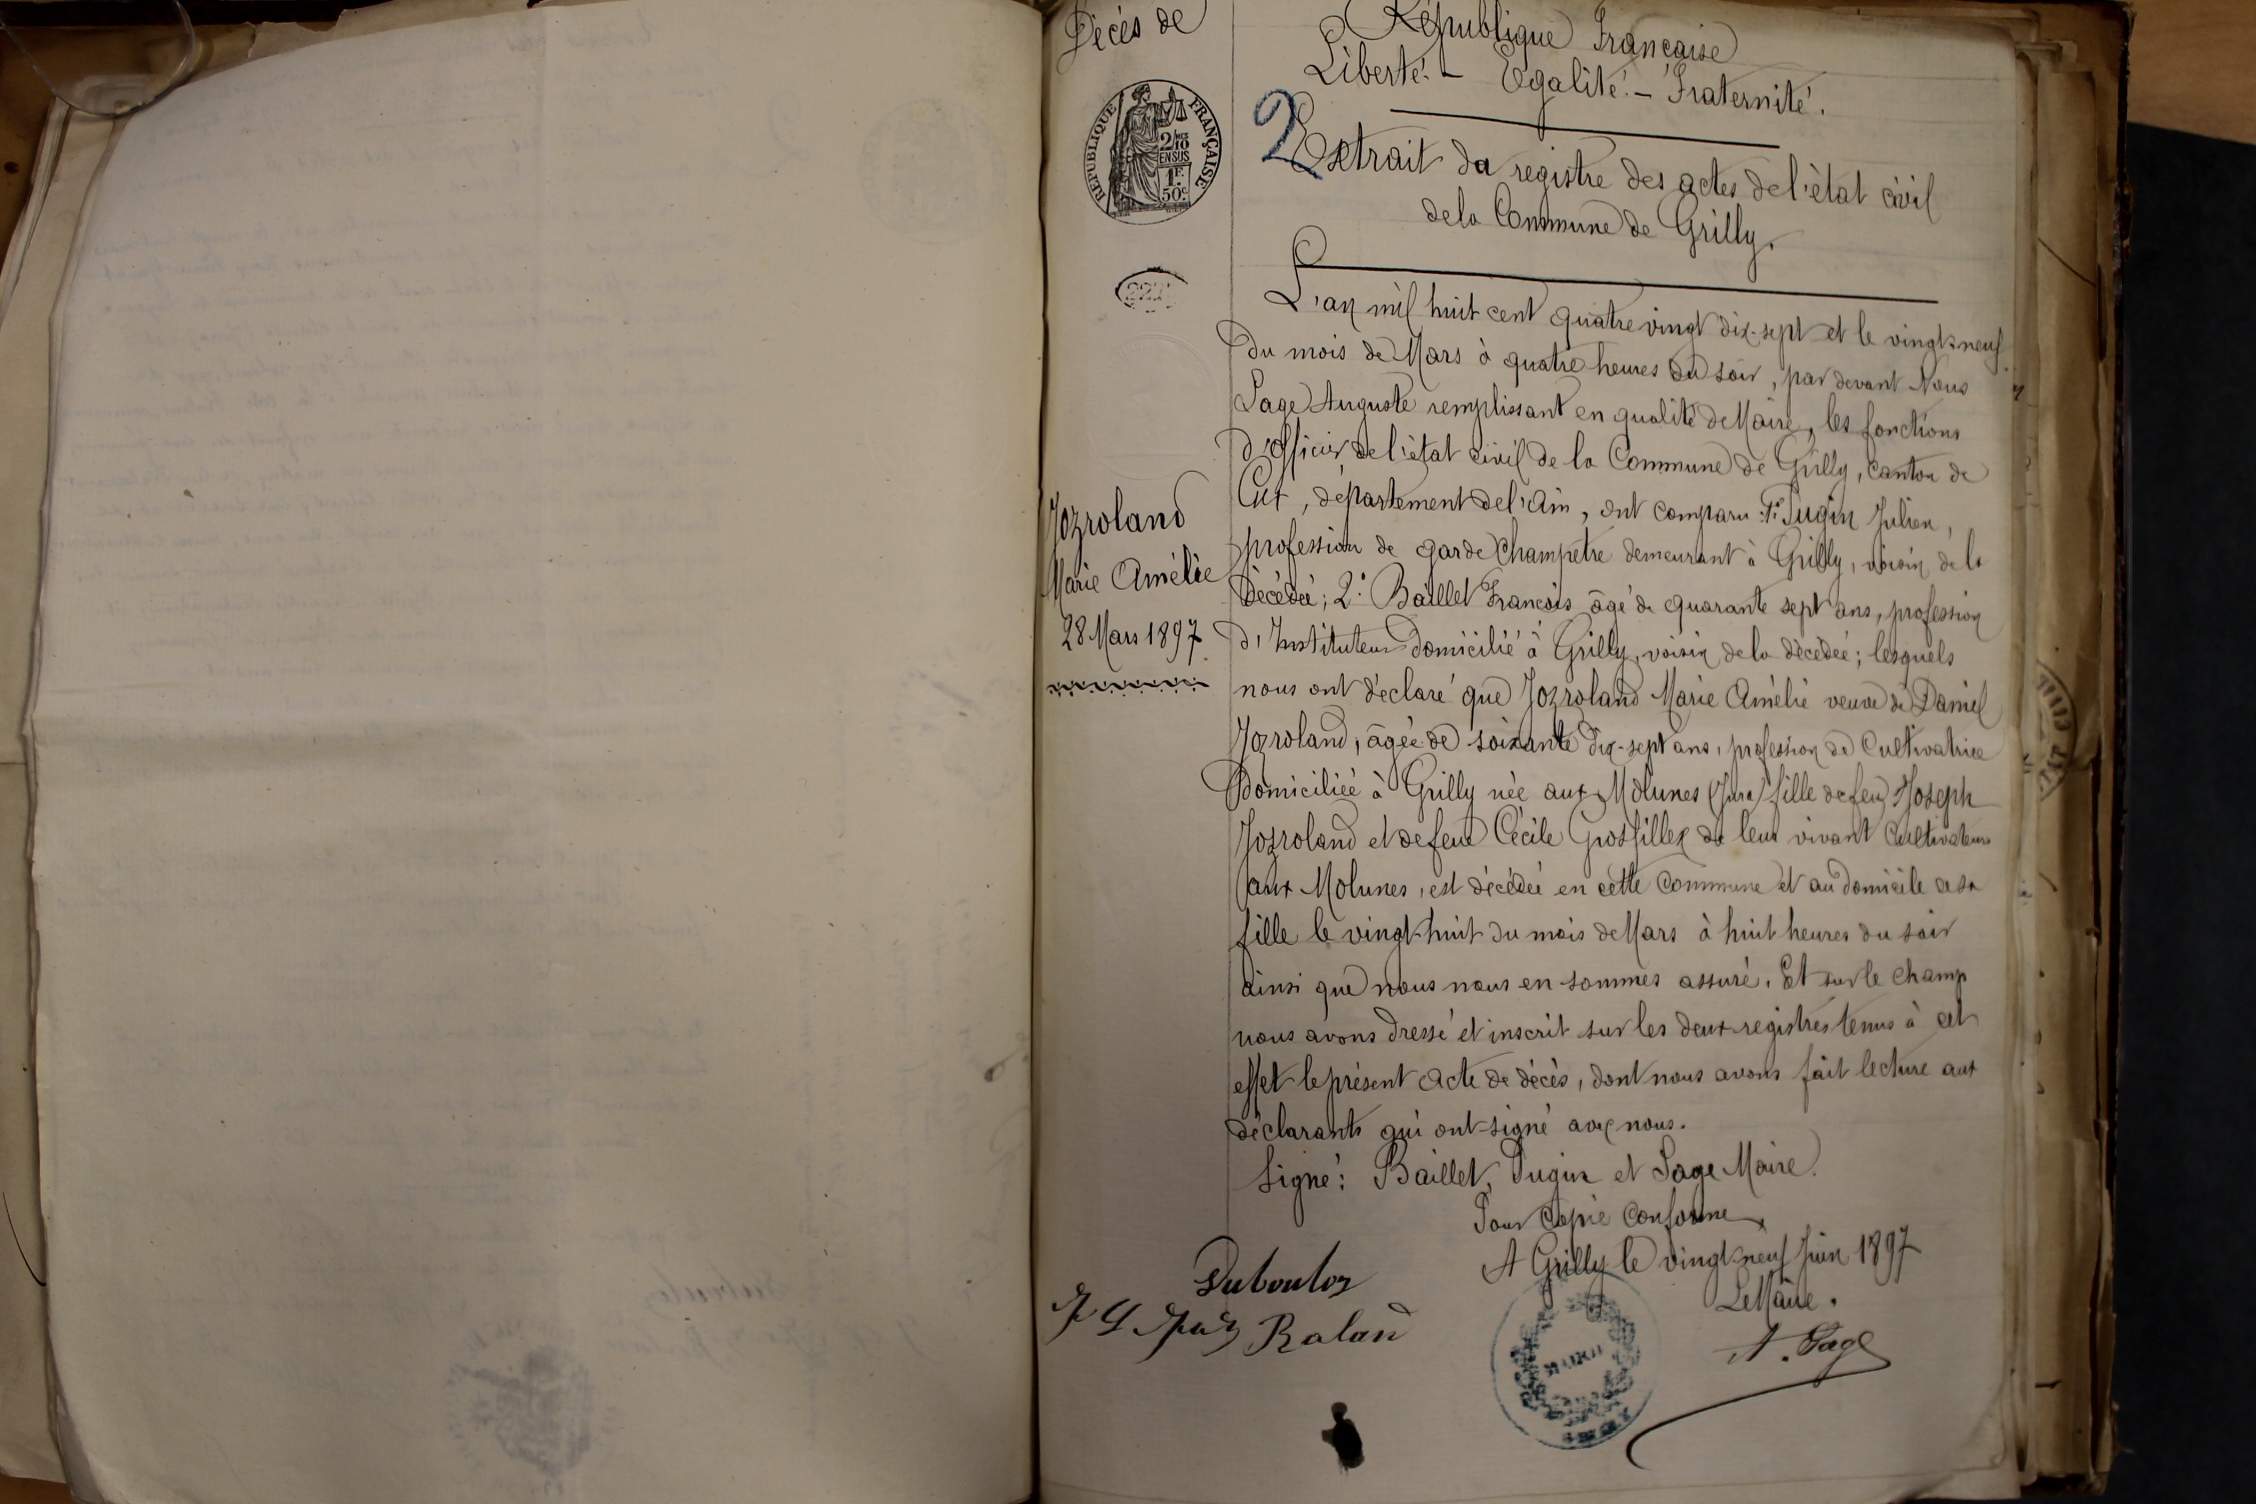 Décès de
République Française
Liberté. - Egalité. - Fraternité.
RÉPUBLIQUE FRANÇAISE
2/10 EN SUS
1F. 50c.
2
Extrait du registre des actes de l'état civil
de la Commune de Grilly.
L'an mil huit cent quatre vingt dix-sept et le vingt-neuf
du mois de Mars à quatre heures du soir, par devant Nous
Sage Auguste remplissant en qualité de Maire, les fonctions
d'Officier de l'état civil de la Commune de Grilly, canton de
Gex, département de l'Ain, ont comparu: 1° Pugin Julien,
profession de garde Champêtre demeurant à Grilly, voisin de la
décédée; 2° Baillet François âgé de quarante sept ans, profession
d'Instituteur domicilié à Grilly, voisin de la décédée; lesquels
nous ont déclaré que Jozroland Marie Amélie veuve de Daniel
Jozroland, âgée de soixante dix-sept ans, profession de Cultivatrice
Domiciliée à Grilly née aux Molunes (Jura) fille de feu Joseph
Jozroland et de feue Cécile Grosfillex de leur vivant Cultivateurs
aux Molunes, est décédée en cette Commune et au domicile de sa
fille le vingt-huit du mois de Mars à huit heures du soir
ainsi que nous nous en sommes assuré. Et sur le champ
nous avons dressé et inscrit sur les deux registres tenus à cet
effet le présent acte de décès, dont nous avons fait lecture aux
déclarants qui ont signé avec nous.
Signé: Baillet, Pugin et Sage Maire.
Pour Copie Conforme
A Grilly le vingt-neuf Juin 1897
Le Maire.
A. Sage
Jozroland
Marie Amélie
28 Mars 1897
Dubouloz
Baland